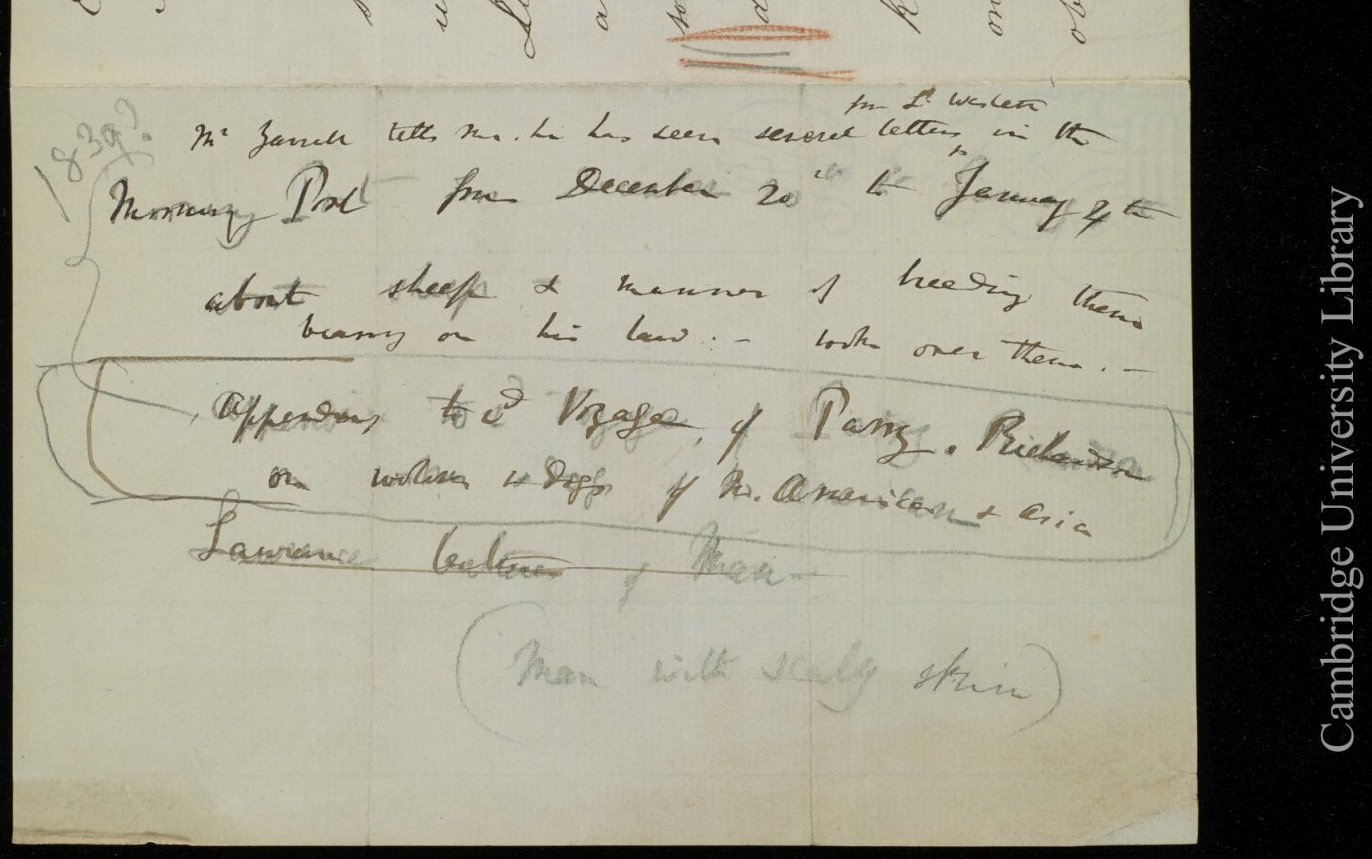 1839?
from Ld. Western
Mr Yarrell tells me. he has seen several letters, in the
Morning Post from December 20th to January 4th
about sheep & manner of breeding them
bearing on his law. – look over them. –
Appendix to 2d Voyage, of Parry. Richardson
on wolves & dogs of N. American & Asia
Lawrence lectures of Man
(Man with scaly skin)
Cambridge University Library